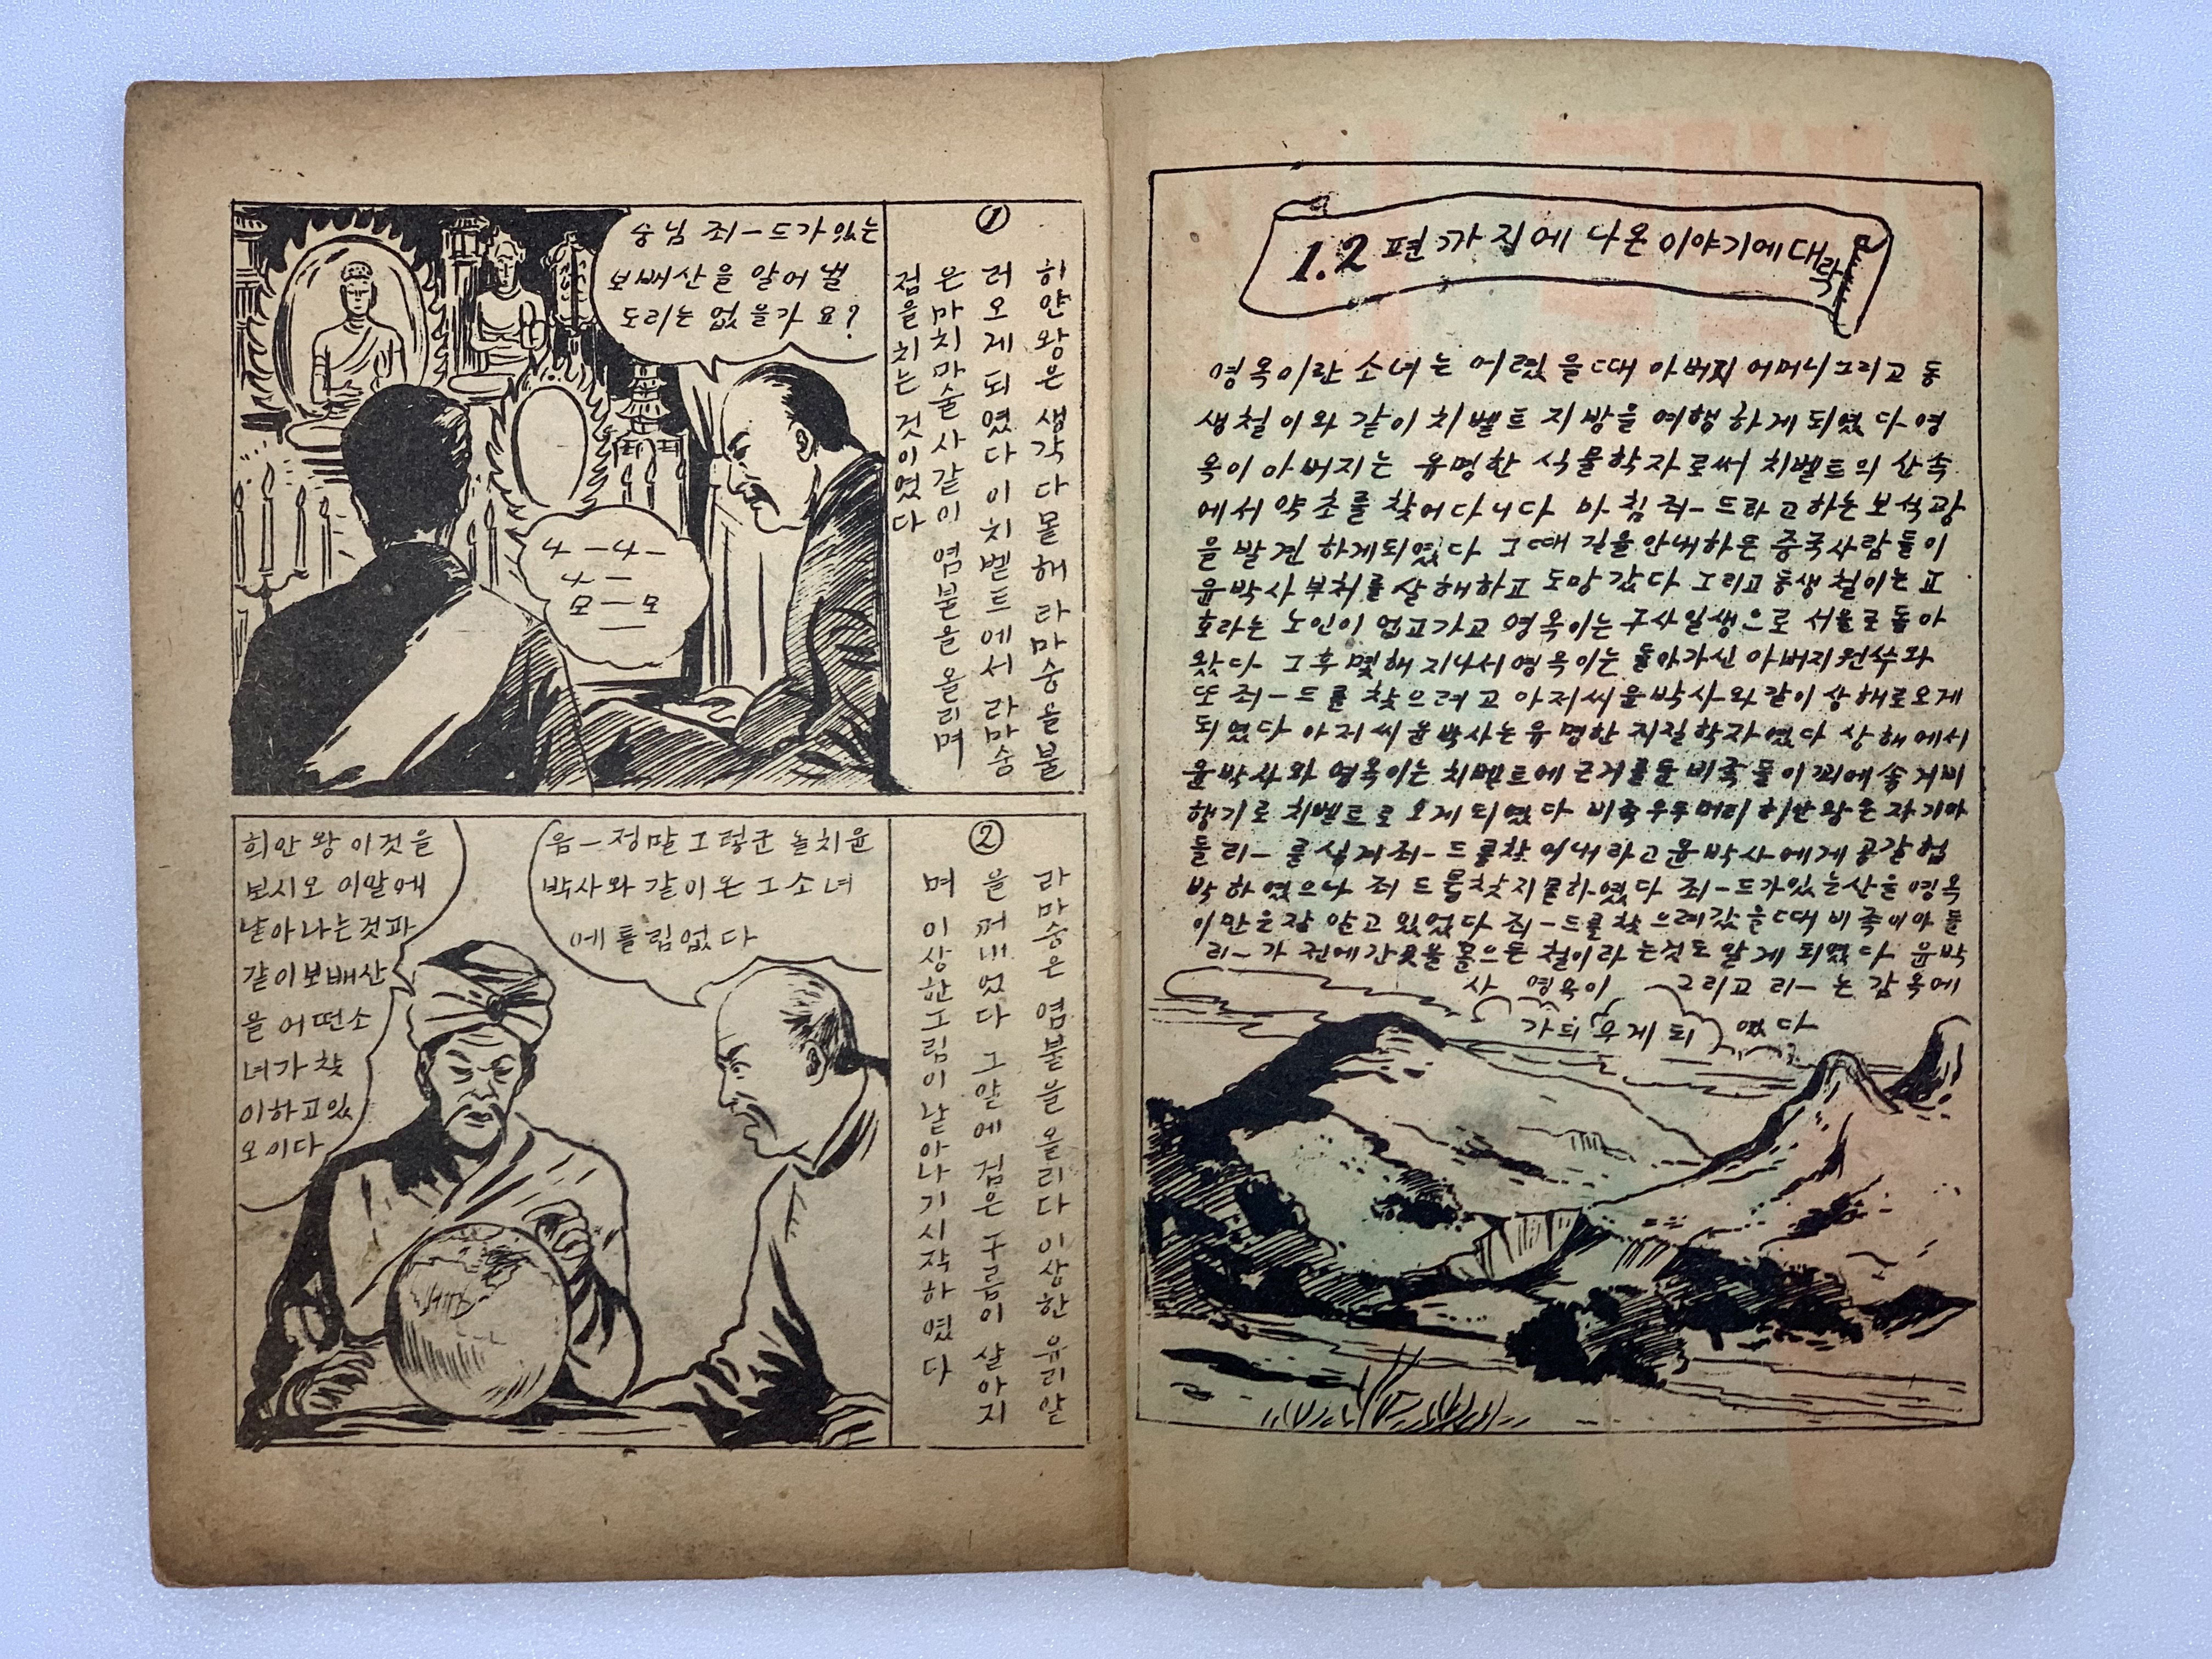 1.2 편 까 집에 나온 이야기에 대략
영옥이란 소녀는 어렸을때 아버지 어머니 그리고 동
생철이와 같이 치벨트 지방을 여행하게되였다 영
옥이 아버지는 유명한 식물학자로써 치벨트의 산속
에서 약초를 찾어다니다 마침 죄-드라고하는 보석광
을 발견 하게되였다 그때 길을 안내하든 중국사람들이
윤박사 부처를 살해하고 도망 갔다 그리고 동생 철이는 교
호라는 노인이 업고가고 영옥이는 구사일생으로 서울로 돌아
왔다 그후 몇해 지나서 영옥이는 돌아가신 아버지 원수와
또 죄-드를 찾으려고 아저씨 윤박사와 같이 상해로오게
되였다 아저씨 윤박사는 유명한 지질학자였다 상해에서
윤박사와 영옥이는 치벨트에 근거를둔 비족들이 꾀에 속겨비
행기로 치벨트로 오게 되였다 비족우두머리 히얀왕은 자기아
들 리-를 식켜 죄-드를찾어내라고 윤박사에게 공갈협
박 하였으나 죄드를찾지를하였다 죄-드가있는산을 영옥
이만은잘 알고 있었다 죄-드를찾으려갔을때 비족이아들
리-가 전에간곳을 몰으든 철이라는것도 알게 되였다 윤박
사 영옥이 그리고 리-는 감옥에
가듸우게되 였다
①
히얀왕은 생각다몰해 라마숭을불
러오게되였다이치벧트에서 라마숭
은마치마술사같이 염불을 올리며
점을치는 것이였다
숭님 죄-드가있는
보배산을 알어낼
도리는 없을가요?
4-4-
4-
모-모
②
라마숭은 염불을 올리다 이상한 유리알
을꺼내였다 그알에 검은구름이 살아지
며 이상한그림이 낱아나기시작하였다
음-정말 그렁군 놀치윤
박사와 같이온 그소녀
에 틀림없다
희안왕 이것을
보시오 이알에
낱아나는것과
같이보배산
을 어떤소
녀가 찾
이하고있
오이다